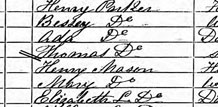 Henry Parker
Bessey Do
Ada Do
Thomas Do
Henry Mason
Mary Do
Elizabeth L. Do